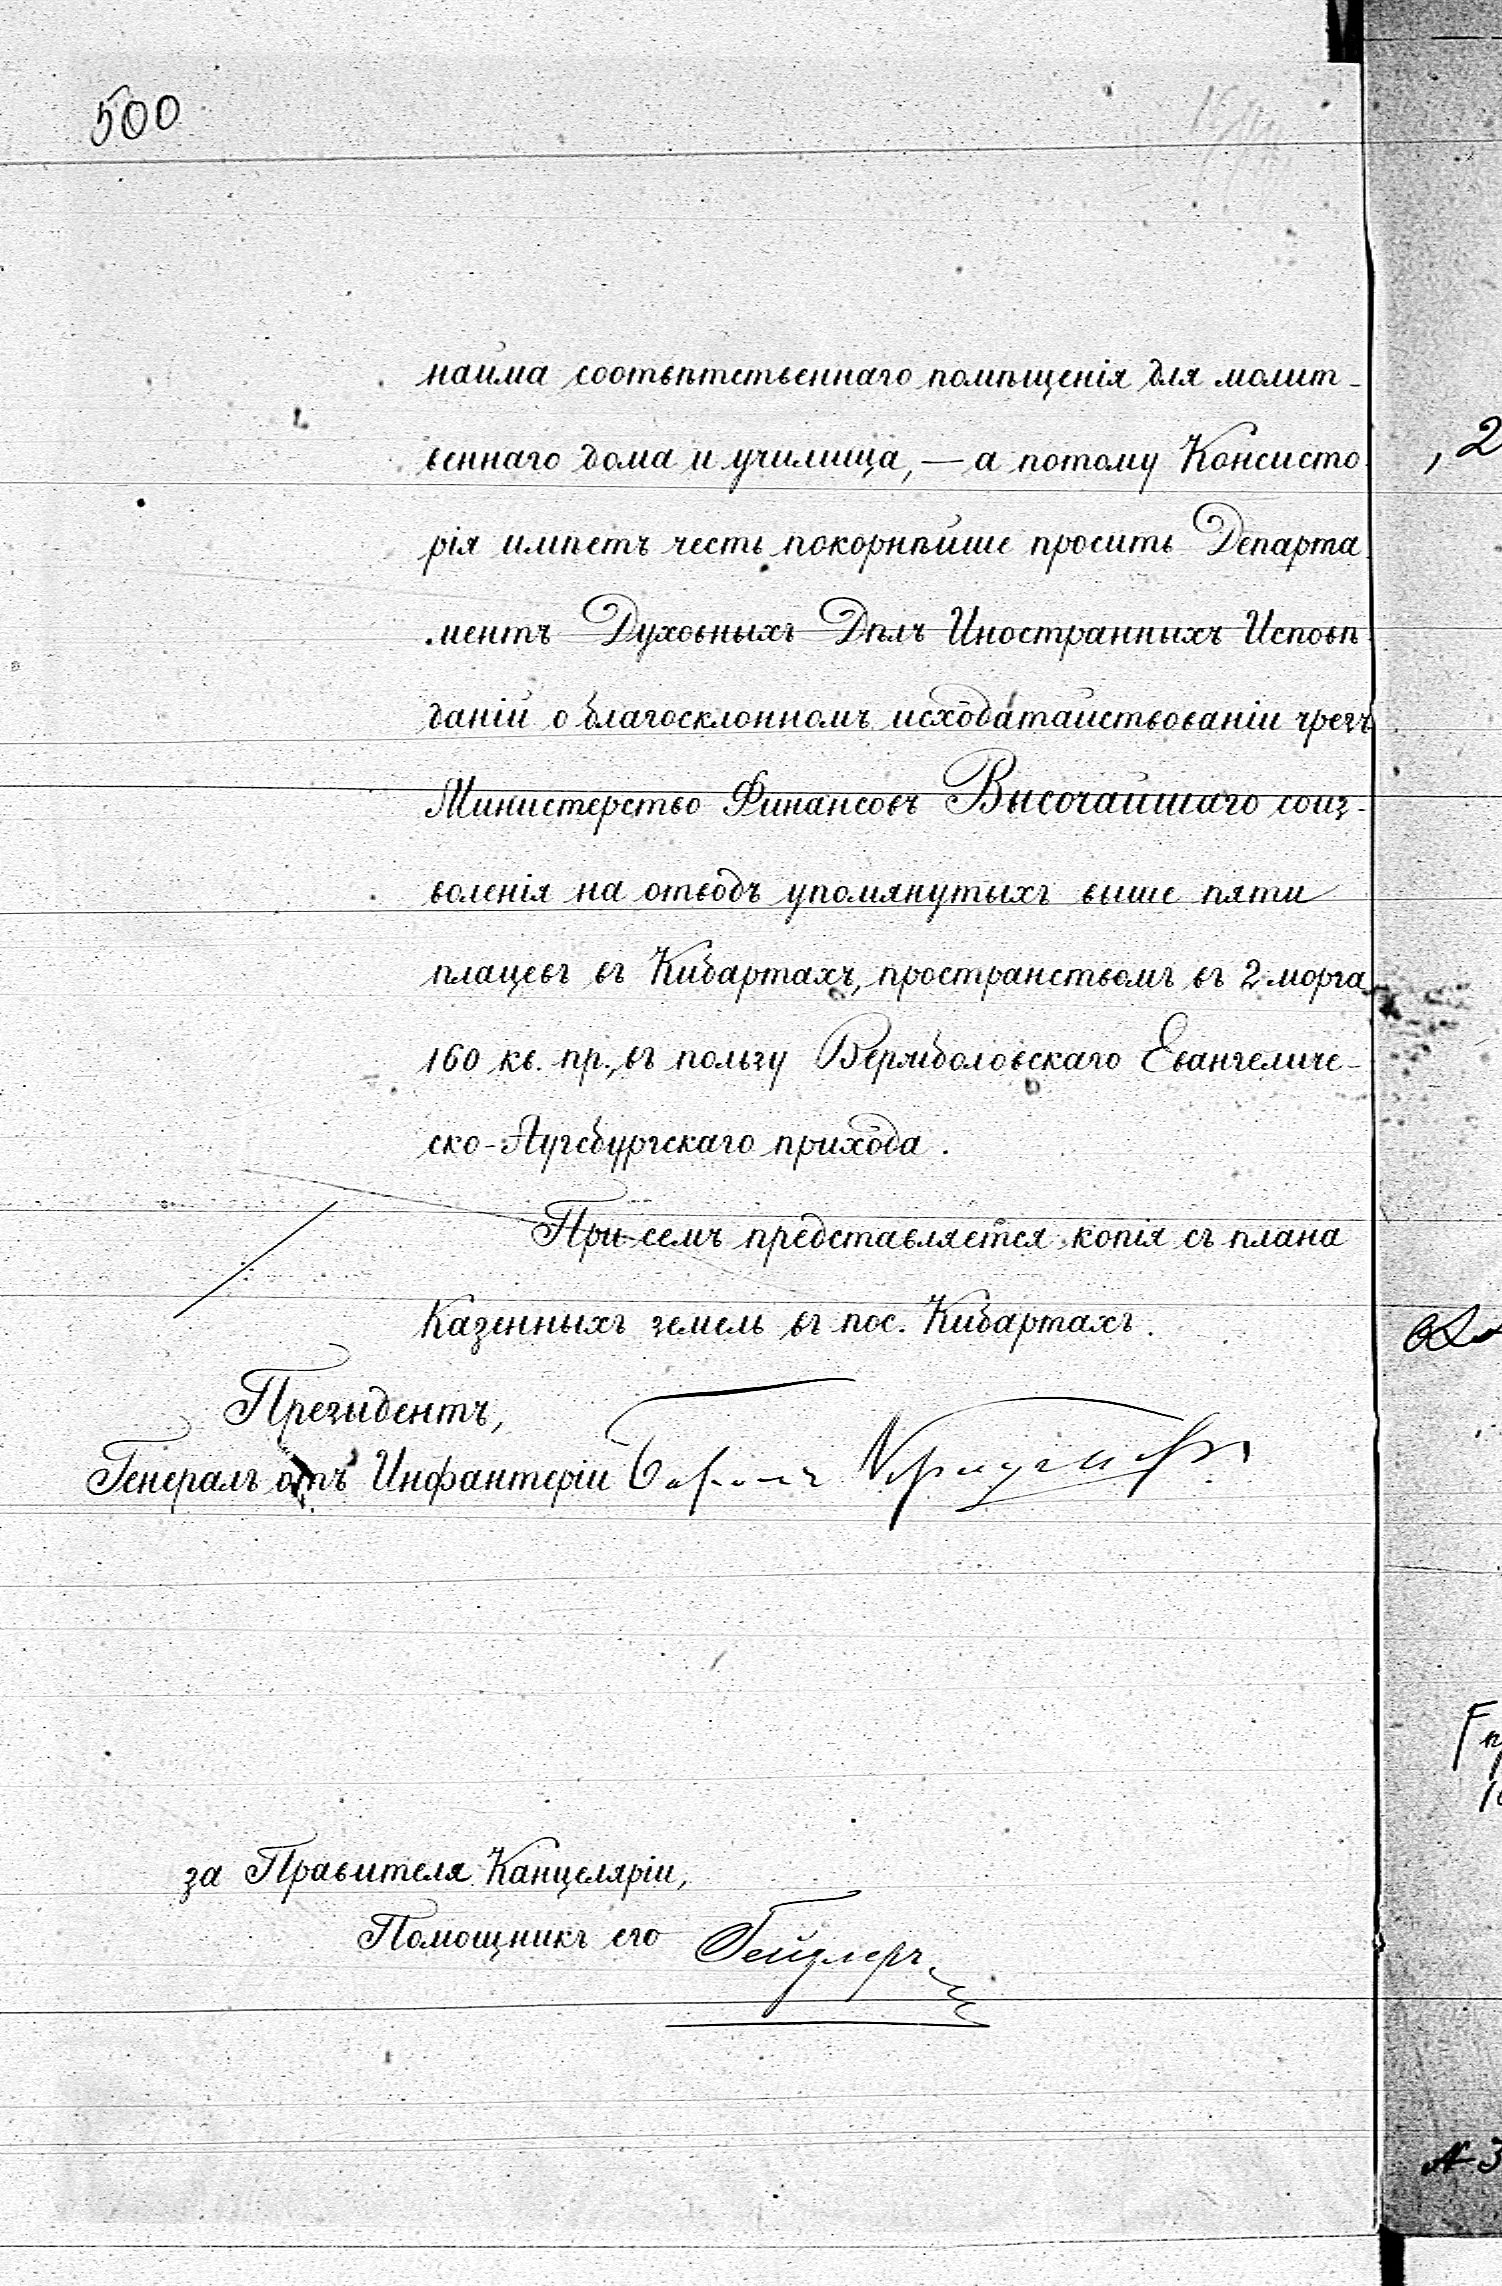 500
найма соотвѣтственнаго помѣщенія для молит-
веннаго дома и училища, — а потому Консисто
рія имѣетъ честь покорнѣйше просить Департа
ментъ Духовныхъ Дѣлъ Иностранныхъ Исповѣ
даній о благосклонномъ исходатайствованіи чрезъ
Министерство Финансовъ Высочайшаго соиз-
воленія на отводъ упомянутыхъ выше пяти
плацевъ въ Кибартахъ, пространствомъ въ 2 морга
160 кв. пр., въ пользу Вержболовскаго Евангеличе-
ско-Аугсбургскаго прихода.
При семъ представляется копія съ плана
Казенныхъ земель въ пос. Кибартахъ.
Президентъ,
Генералъ отъ Инфантеріи Баронъ
за Правителя Канцеляріи,
Помощникъ его